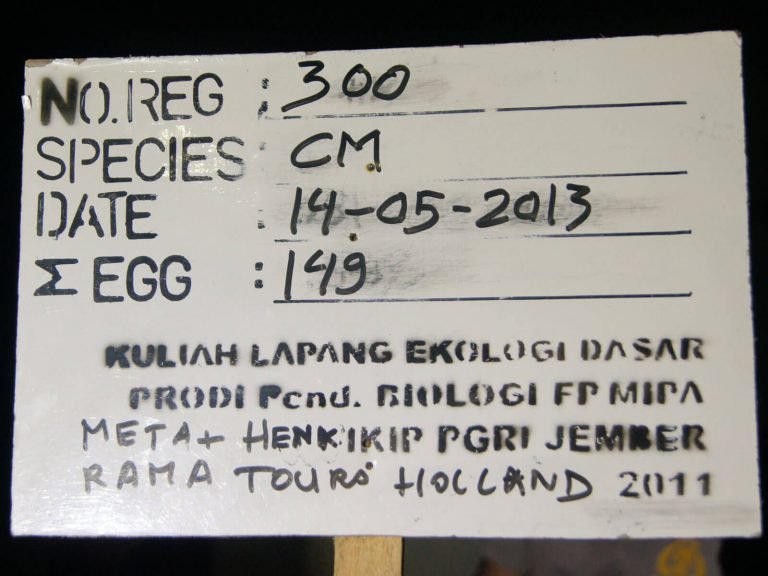 NO.REG : 300
SPECIES : CM
DATE : 14-05-2013
Σ EGG : 149
KULIAH LAPANG EKOLOGI DASAR
PRODI Pend. BIOLOGI FP MIPA
META + HENK IKIP PGRI JEMBER
RAMA TOURS HOLLAND 2011